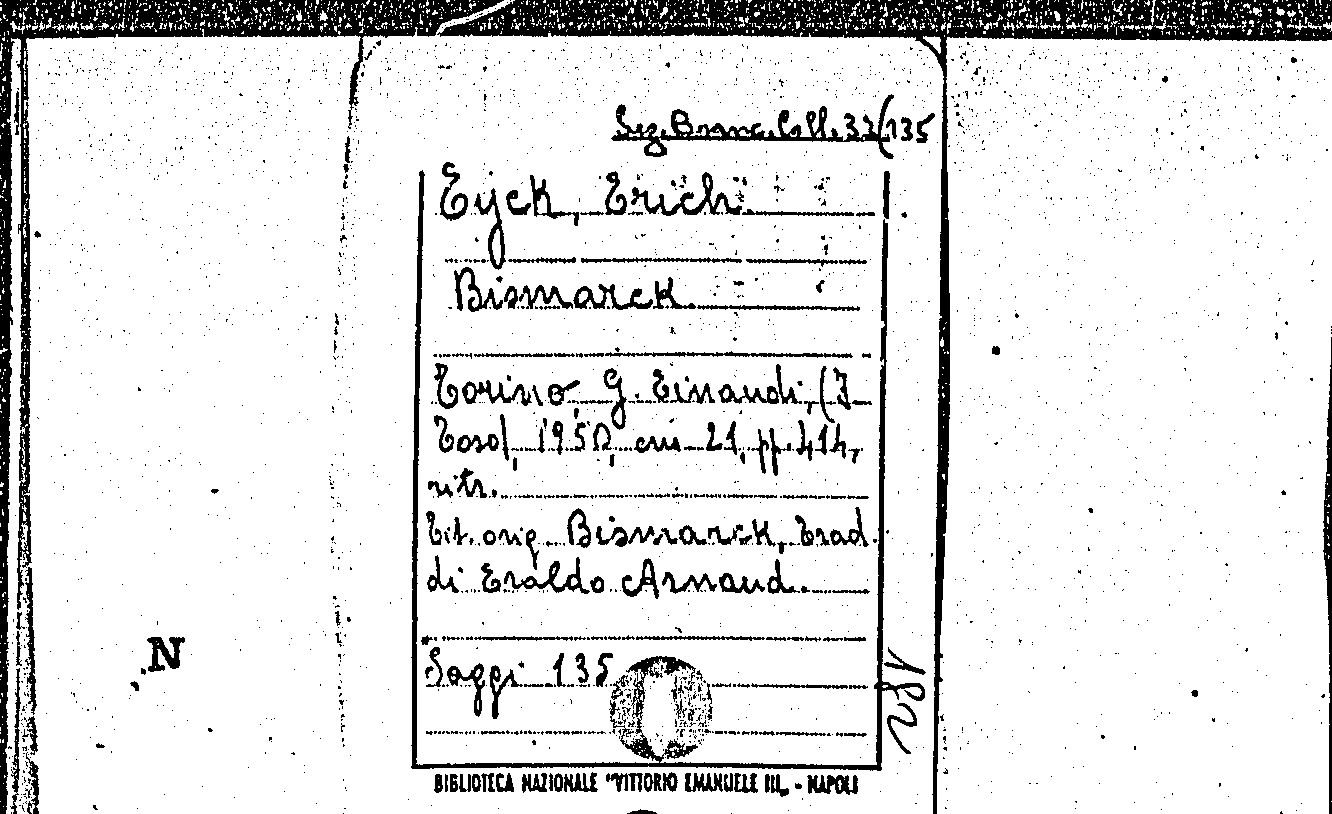 Sez. Branc. Coll. 33(135
Eyck, Erich.
Bismarck.
Torino, G. Einaudi, (I-
Toso), 1950, cm 21, pp. 414,
ritr.
Tit. orig. Bismarck. Trad.
di Eraldo Arnaud.
Saggi 135
BIBLIOTECA NAZIONALE "VITTORIO EMANUELE III" - NAPOLI
N